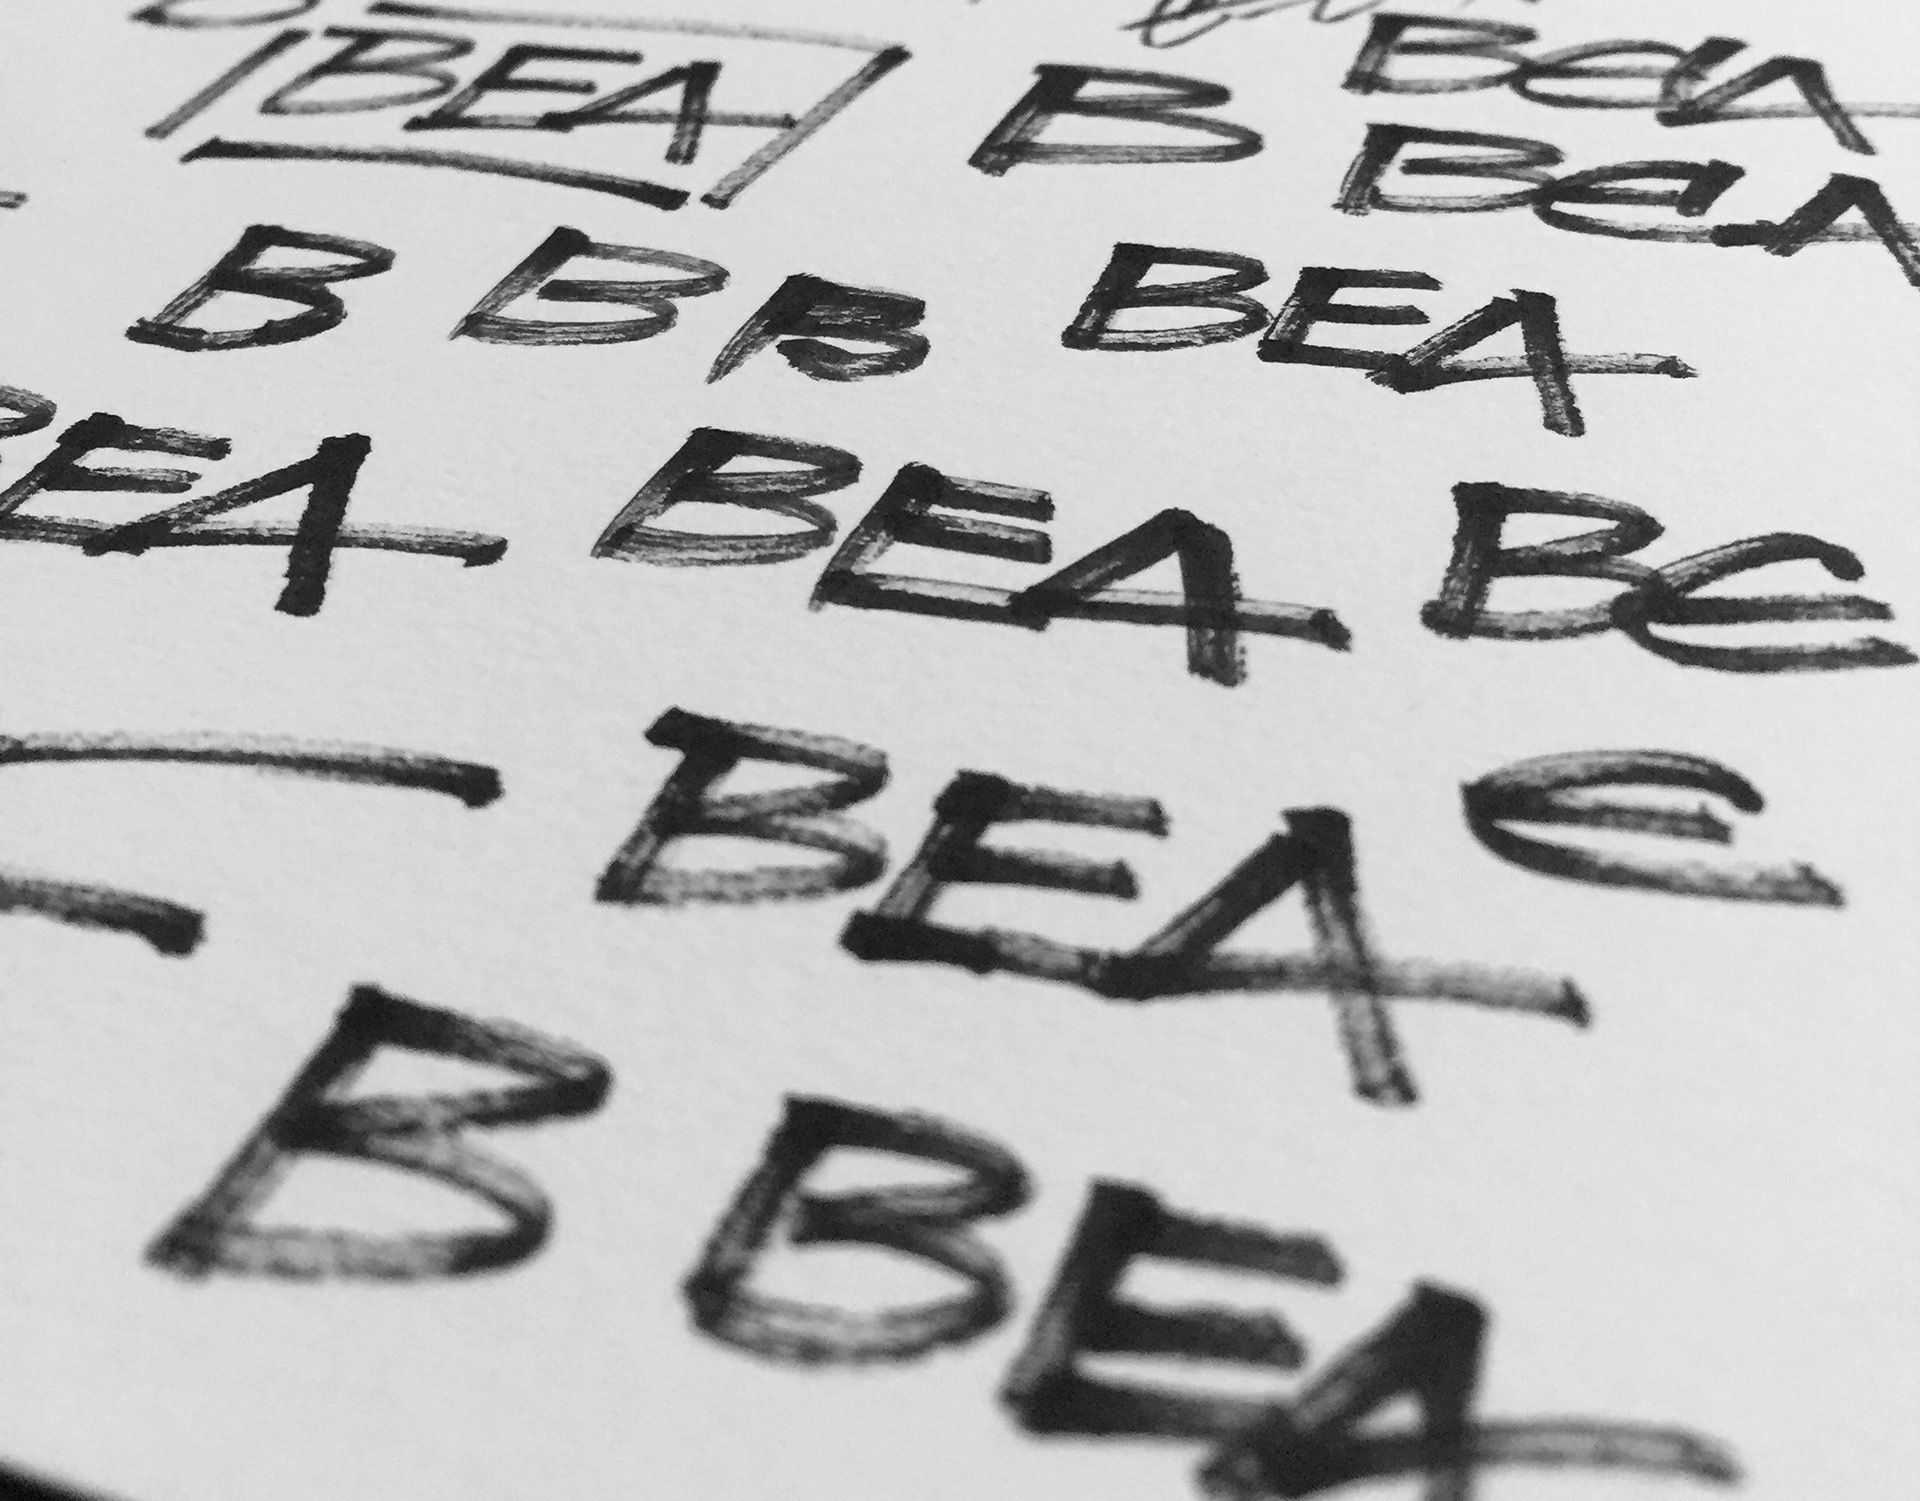 BEA B BEA
BEA
B B B BEA
EA BEA BE
BEA E
B BEA